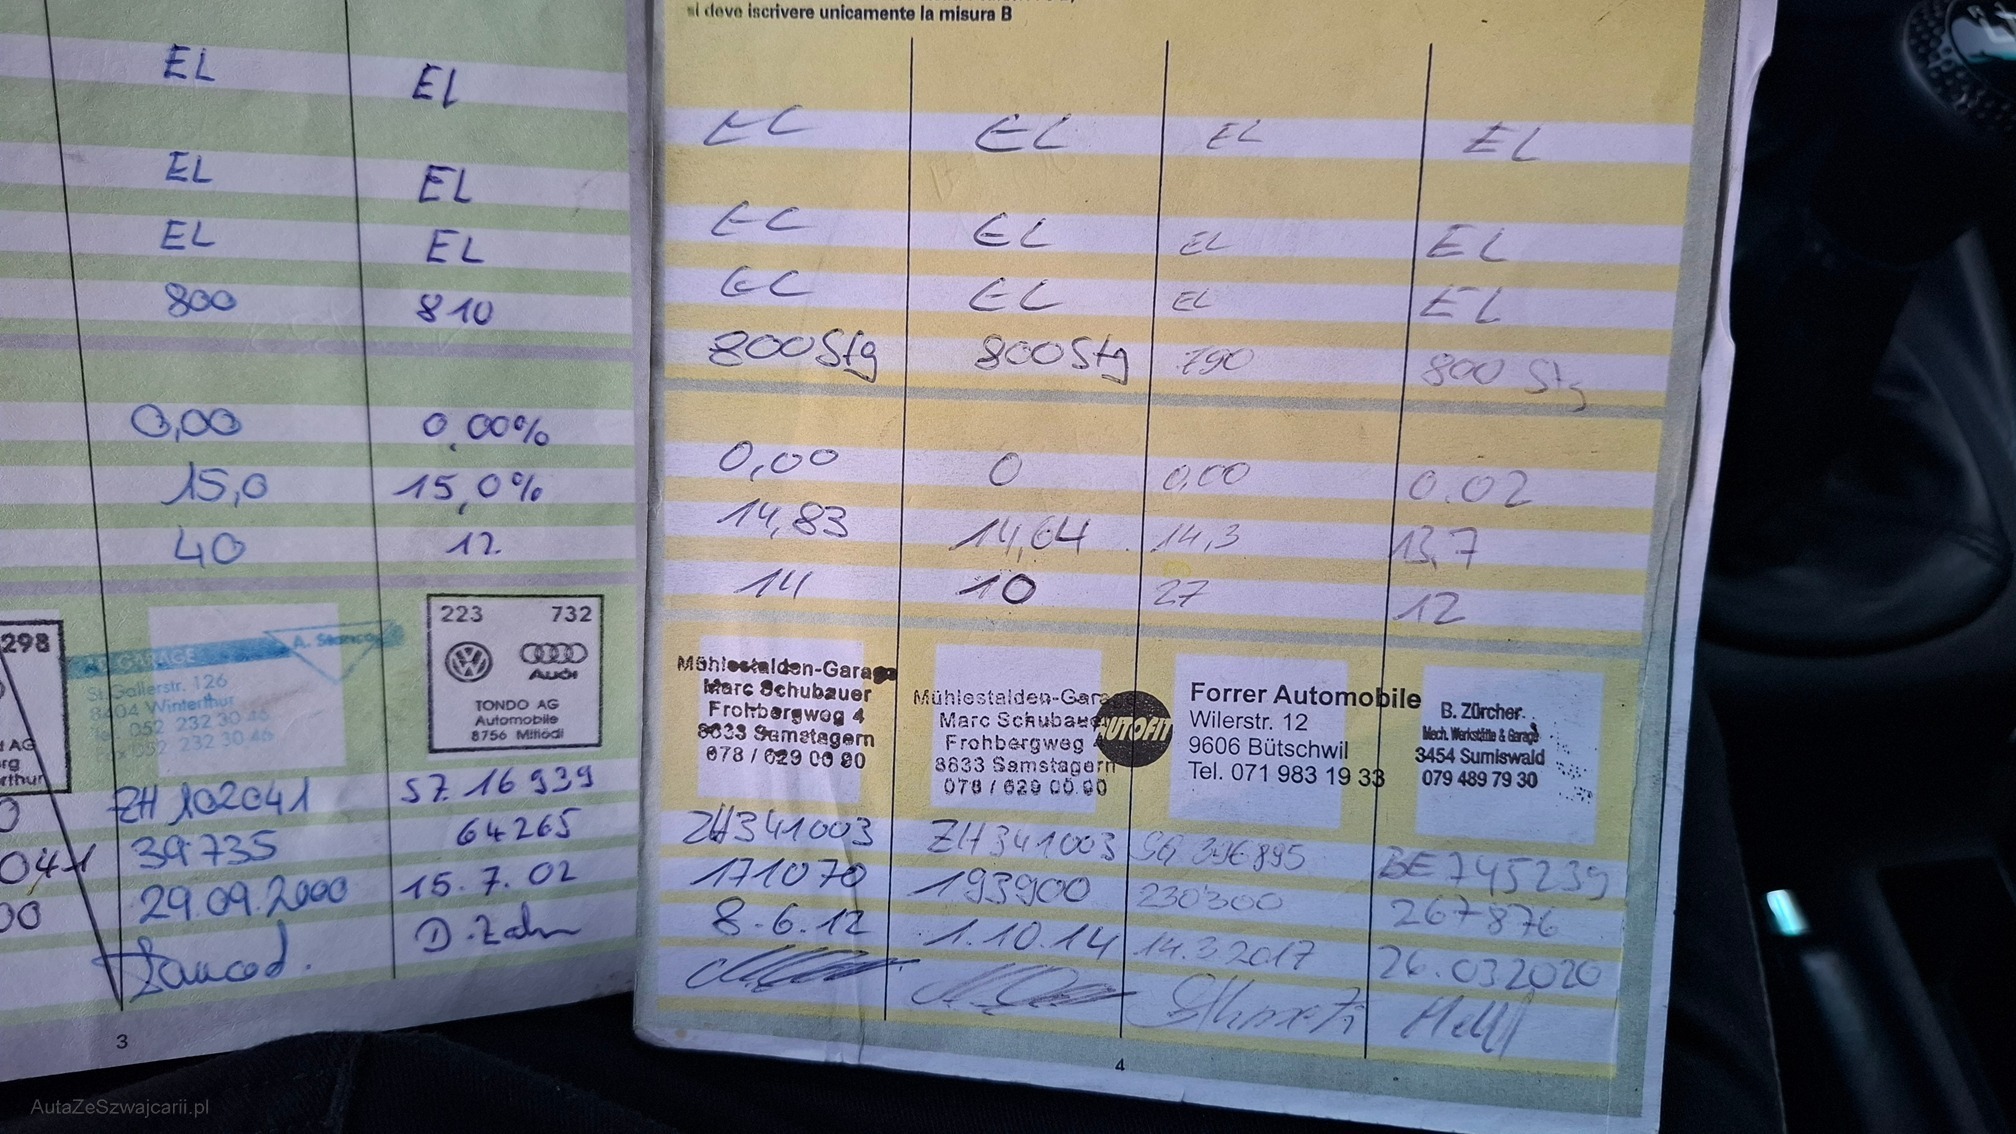 si deve iscrivere unicamente la misura B
EL
EL
EL
EL
EL
EL
800
810
0,00
0,00%
15,0
15,0%
40
12
298
AG
AG GARAGE
St. Gallerstr. 126
8404 Winterthur
052 232 30 46
052 232 30 46
223 732
Audi
TONDO AG
Automobile
8756 Mitlödi
ZH 102041
SZ 16939
041
39735
64265
00
29.09.2000
15.7.02
D. Zahn
3
EL
EL
EL
EL
EL
EL
EL
EL
EL
EL
EL
EL
800 Stg
800 Stg
790
800 Stg
0,00
0
0,00
0.02
14,83
14,64
14,3
13,7
14
10
27
12
Mühlestalden-Garage
Marc Schubauer
Frohbergweg 4
8833 Samstagern
078 / 629 00 90
Mühlestalden-Garage
Marc Schubauer
Frohbergweg 4
8833 Samstagern
078 / 629 00 90
AUTOFIT
Forrer Automobile
Wilerstr. 12
9606 Bütschwil
Tel. 071 983 19 33
B. Zürcher
Mech. Werkstätte & Garage
3454 Sumiswald
079 489 79 30
ZH341003
ZH341003
SG 396895
BE 745239
171070
193900
230'300
267876
8.6.12
1.10.14
14.3.2017
26.03.2020
4
AutaZeSzwajcarii.pl